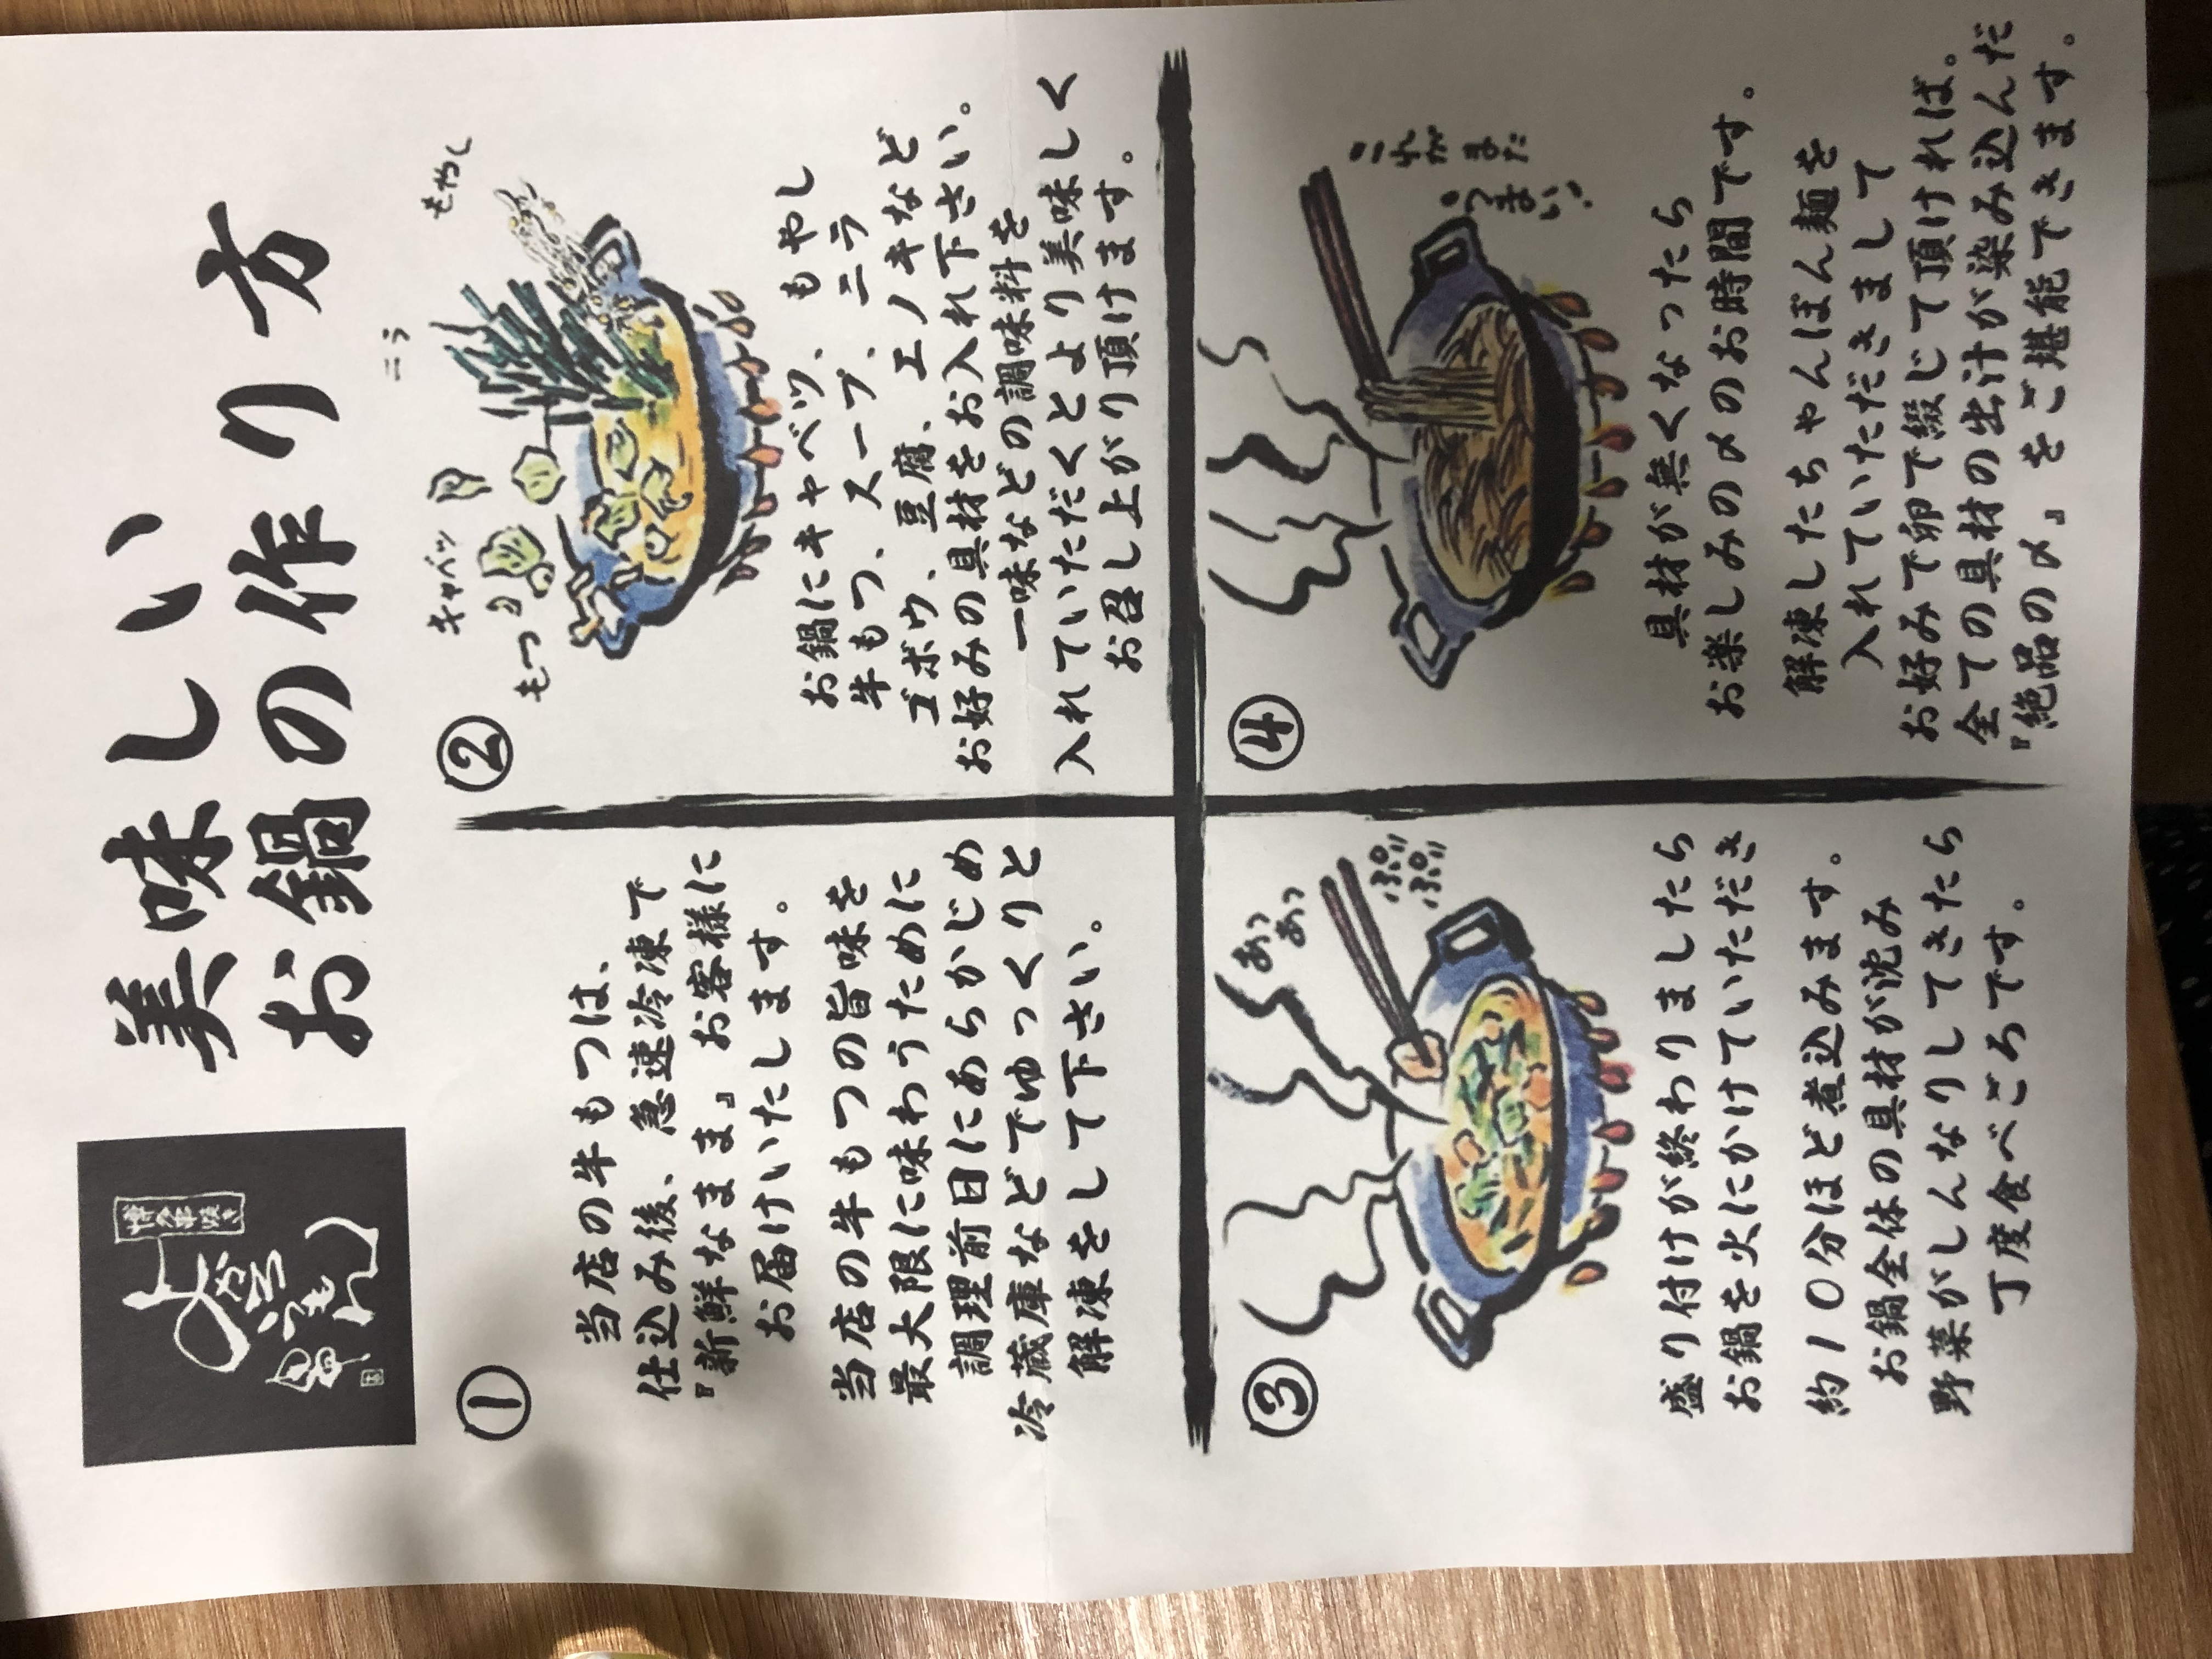 美味しい
お鍋の作り方
博多串焼き
①
当店の牛もつは、
仕込み後、急速冷凍で
『新鮮なまま』お客様に
お届けいたします。
当店の牛もつの旨味を
最大限に味わうために
調理前日にあらかじめ
冷蔵庫などでゆっくりと
解凍をして下さい。
②
もつ
キャベツ
ニラ
もやし
お鍋にキャベツ、もやし
牛もつ、スープ、ニラ
ゴボウ、豆腐、エノキなど
お好みの具材をお入れ下さい。
一味などの調味料を
入れていただくとより美味しく
お召し上がり頂けます。
③
あっ
あっ
ぷり
ぷり
盛り付けが終わりましたら
お鍋を火にかけていただき
約10分ほど煮込みます。
お鍋全体の具材が沈み
野菜がしんなりしてきたら
丁度食べごろです。
④
これがまた
うまい!
具材が無くなったら
お楽しみの〆のお時間です。
解凍したちゃんぽん麺を
入れていただきまして
お好みで卵で綴じて頂ければ。
全ての具材の出汁が染み込んだ
『絶品の〆』をご堪能できます。